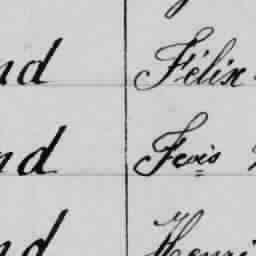 nd Félix
nd Fcois
nd Henri